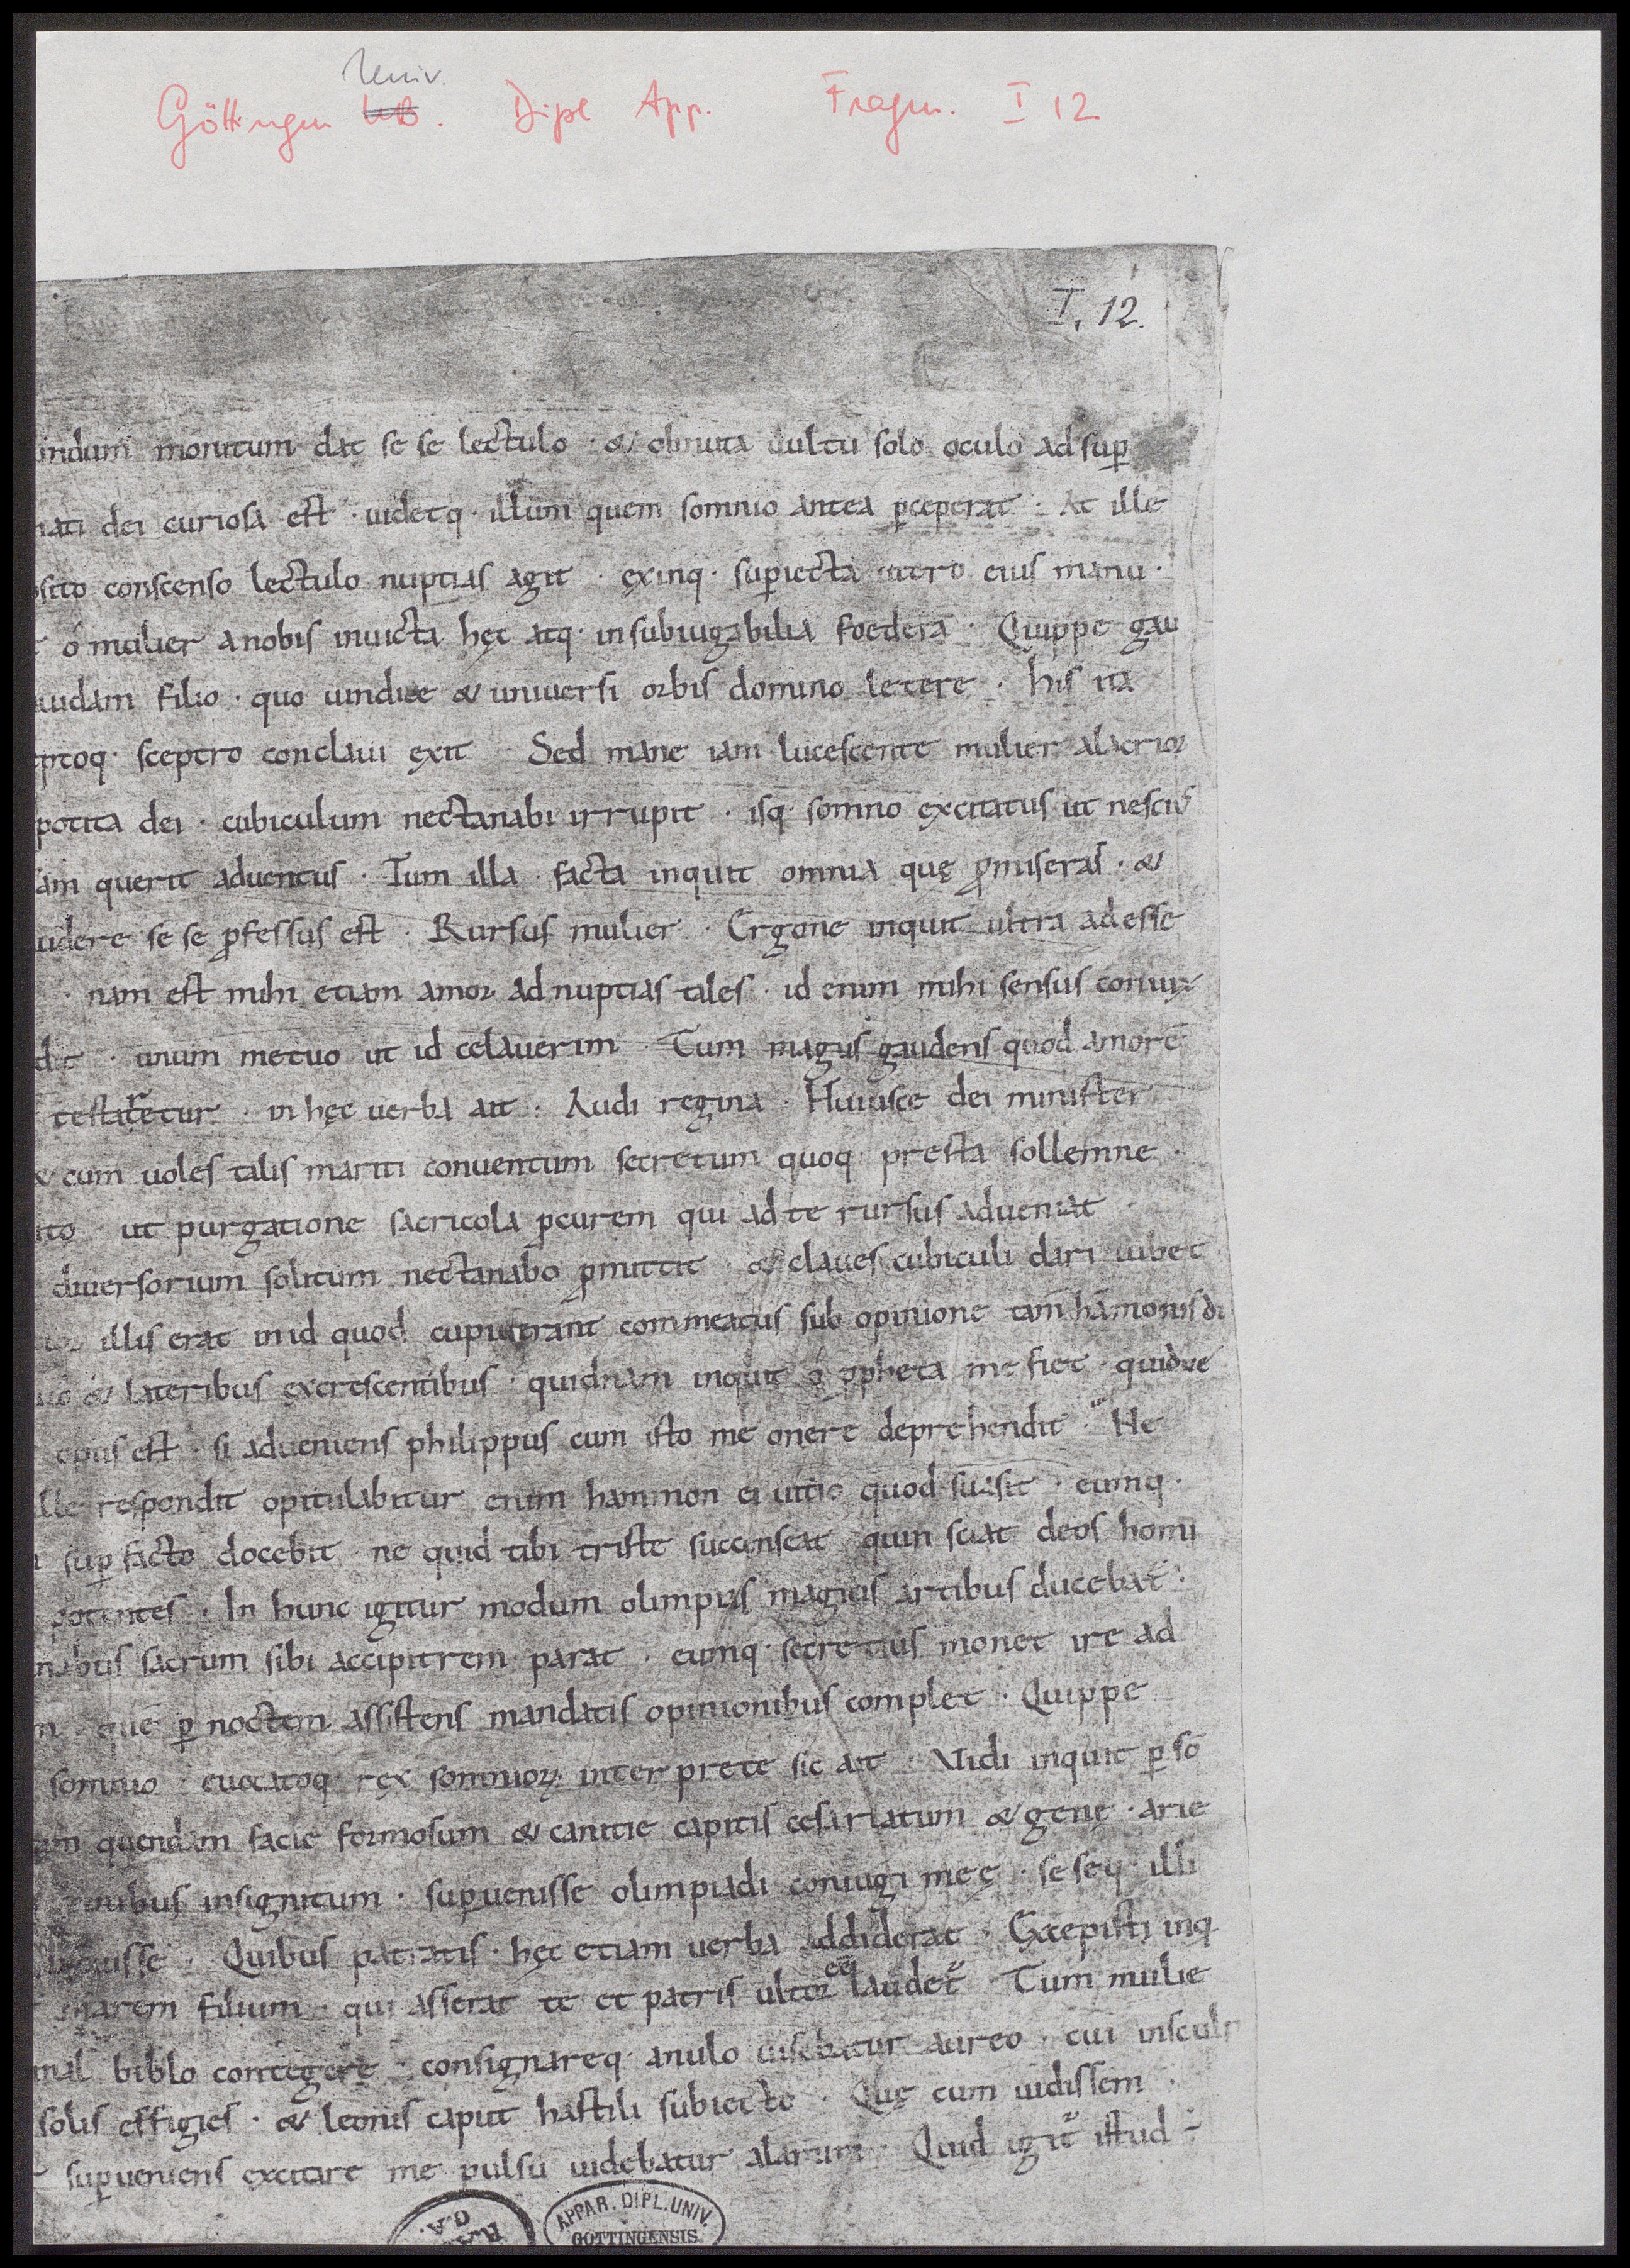 Univ.
Göttingen UB. Dipl App. Fragm. I 12
I, 12.
indum monitum dat se se lectulo · & obnuta uultu solo oculo ad sup̄
nati dei curiosa est · uidetq· illum quem somnio antea ꝑceperat · At ille
osito conscenso lectulo nuptias agit · exinq· suꝑiecta utero eius manu ·
ó mulier a nobis inuicta hęc atq· insubiugabilia foedera · Quippe gau
uidam filio · quo uindice & uniuersi orbis domino letere · his ita
eptoq· sceptro conclaui exit Sed mane iam lucescente mulier alacrior
potita dei · cubiculum nectanabi irrupit · isq· somno excitatus ut nescius
am querit aduentus · Tum illa · facta inquit omnia quę ꝓmiseras · &
uidere se se ꝓfessus est · Rursus mulier · Ergone inquit ultra adesse
· nam est mihi etiam amor ad nuptias tales · id enim mihi sensus coniux
dit · unum metuo ut id celauerim · Tum magus gaudens quod amore
testaretur · in hęc uerba ait · Audi regina · Huiusce dei minister
& cum uoles talis mariti conuentum secretum quoq· presta sollemne ·
ito · ut purgatione sacricola ꝓcurem qui ad te rursus adueniat ·
diuersorium solitum nectanabo ꝓmittit · & claues cubiculi dari iubet
illis erat in id quod cupiuerant commeatus sub opinione tam hāmonis di
uo & lateribus excrescentibus · quidnam inquit ó ꝓpheta me fiet · quidue
opus est · si adueniens philippus cum isto me onere deprehendit · He
lle respondit opitulabitur enim hammon ei uitio quod suasit · eumq·
suꝑ facto docebit · ne quid tibi triste succenseat quin sciat deos homi
potentes · In hunc igitur modum olimpias magicis artibus ducebat ·
nabus sacrum sibi accipitrem parat · eumq· secretius monet ire ad
m · que ꝑ noctem assistens mandatis opinionibus complet · Quippe
somnio · euocatoq· rex somnioꝝ interprete sic ait · Vidi inquit ꝑ so
am quendam facie formosum & canitie capitis cesariatum & genę · arie
nibus insignitum · suꝑuenisse olimpiadi coniugi meę · se seq· illi
buisse · Quibus patratis · hęc etiam uerba addiderat · Excepisti inq·
marem filium · qui asserat te et patris ultor eē laudet̄ · Tum mulie
nal biblo contegere · consignareq· anulo uisebatur aureo · cui insculp
solis effigies · & leonis caput hastili subiecto · Quę cum uidissem ·
suꝑueniens excitare me pulsu uidebatur alarum · Quid igit̄ istud ÷
APPAR. DIPL. UNIV. GOTTINGENSIS